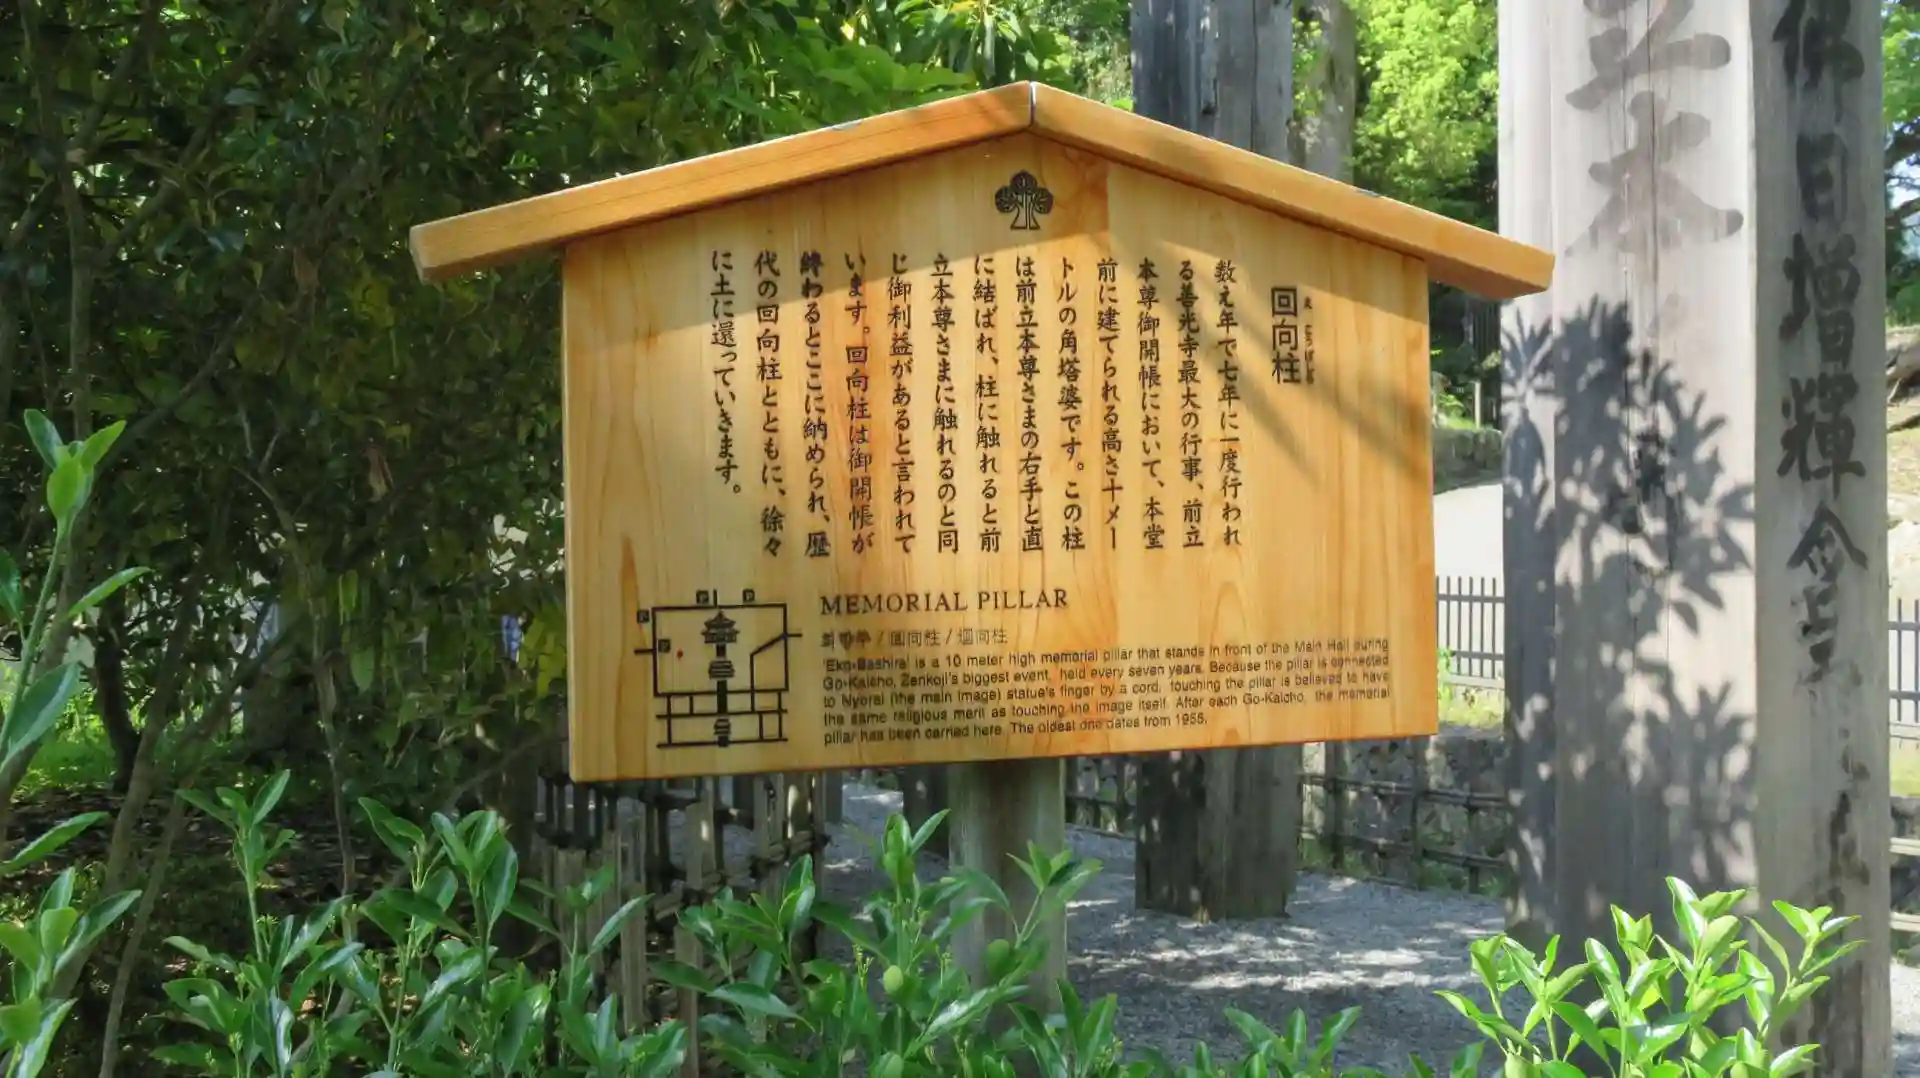 回向柱
え こうばしら
数え年で七年に一度行われ
る善光寺最大の行事、前立
本尊御開帳において、本堂
前に建てられる高さ十メー
トルの角塔婆です。この柱
は前立本尊さまの右手と直
に結ばれ、柱に触れると前
立本尊さまに触れるのと同
じ御利益があると言われて
います。回向柱は御開帳が
終わるとここに納められ、歴
代の回向柱とともに、徐々
に土に還っていきます。
MEMORIAL PILLAR
회향주 / 回向柱 / 迴向柱
'Eko-Bashira' is a 10 meter high memorial pillar that stands in front of the Main Hall during
Go-Kaicho, Zenkoji's biggest event, held every seven years. Because the pillar is connected
to Nyorai (the main image) statue's finger by a cord, touching the pillar is believed to have
the same religious merit as touching the image itself. After each Go-Kaicho, the memorial
pillar has been carried here. The oldest one dates from 1955.
P
P
P
P
立本
佛日増輝